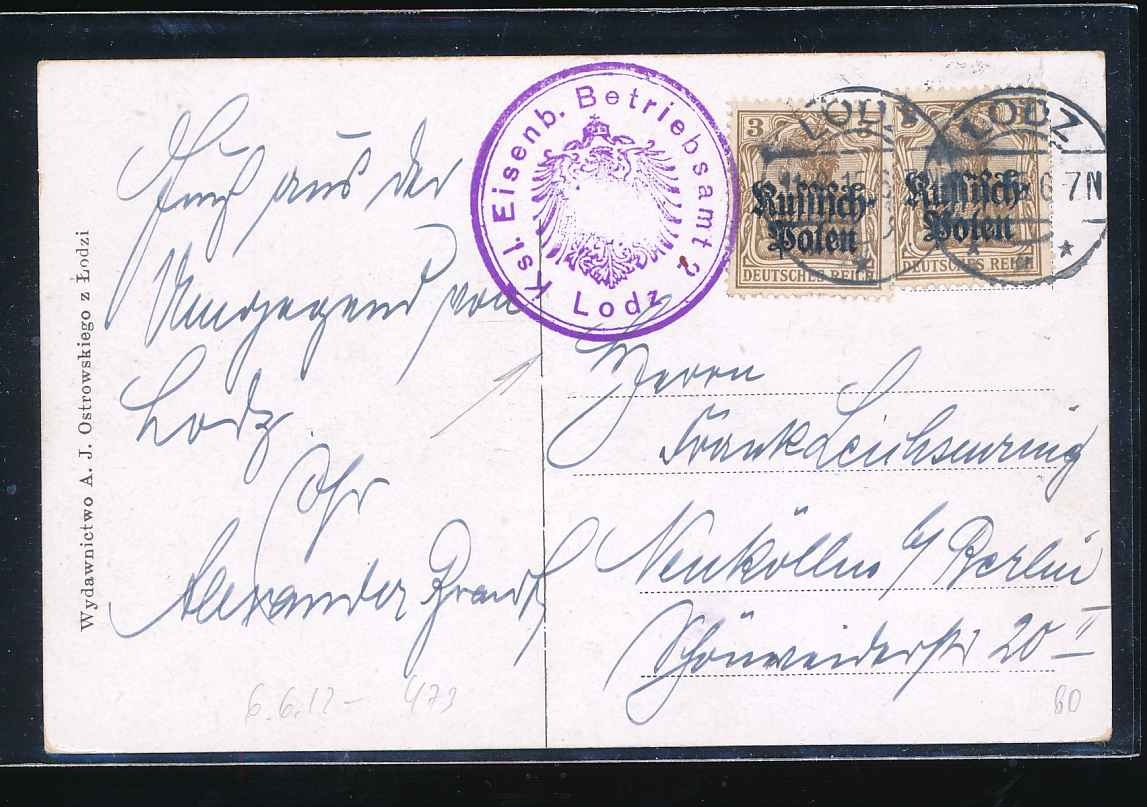 Wydawnictwo A. J. Ostrowskiego z Łodzi
aus der
Umgegend von
Lodz.
Ihr
Alexander Brandt
Ksl. Eisenb. Betriebsamt 2
Lodz
LODZ
3
Russisch-
Polen
DEUTSCHES REICH
LODZ
6-7N
Russisch-
Polen
DEUTSCHES REICH
Herrn
Frank
Neukölln b/ Berlin
Schönweiderstr 20 II
6.6.12- 473
80